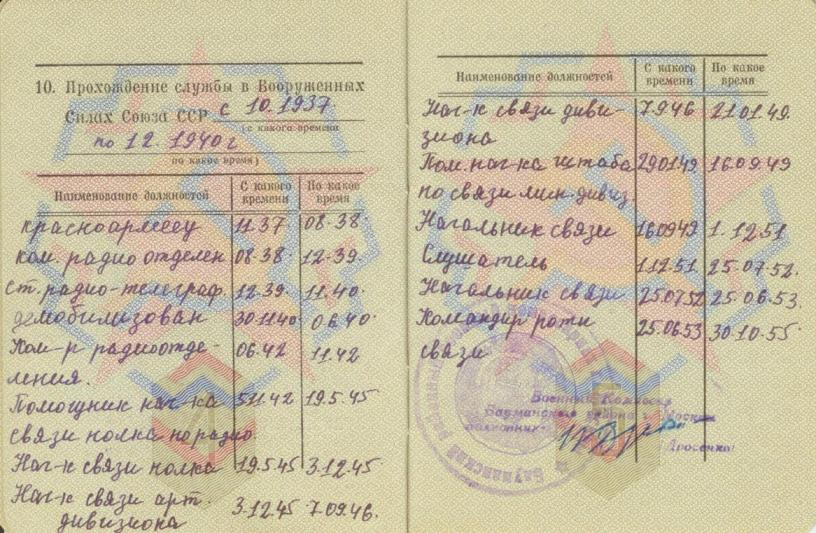 10. Прохождение службы в Вооруженных
Силах Союза ССР с 10.1937.
(с какого времени
по 12. 1940 г
по какое время)
Наименование должностей С какого времени По какое время
красноармеец 11.37. 08-38.
ком. радио отделен 08.38. 12-39.
ст. радио-телеграф. 12.39. 11.40.
демобилизован 30.11.40 06.40.
Ком-р радиоотде- 06.42 11.42
ления.
Помощник нач-ка 5.11.42 19.5.45
связи полка по радио.
Нач-к связи полка 19.5.45 3.12.45.
Нач-к связи арт. 3.12.45 7.09.46.
дивизиона
Наименование должностей С какого времени По какое время
Нач-к связи диви- 7.9.46 21.01.49.
зиона
Пом. нач-ка штаба 290149 16.09.49
по связи мин. дивиз.
Начальник связи 160949 1.12.51
Слушатель 1.12.51 25.07.52.
Начальник связи 250752 25.06.53.
Командир роты 25.06.53 30.10.55.
связи
Военный Комиссар
Бауманского района г. Москвы
полковник